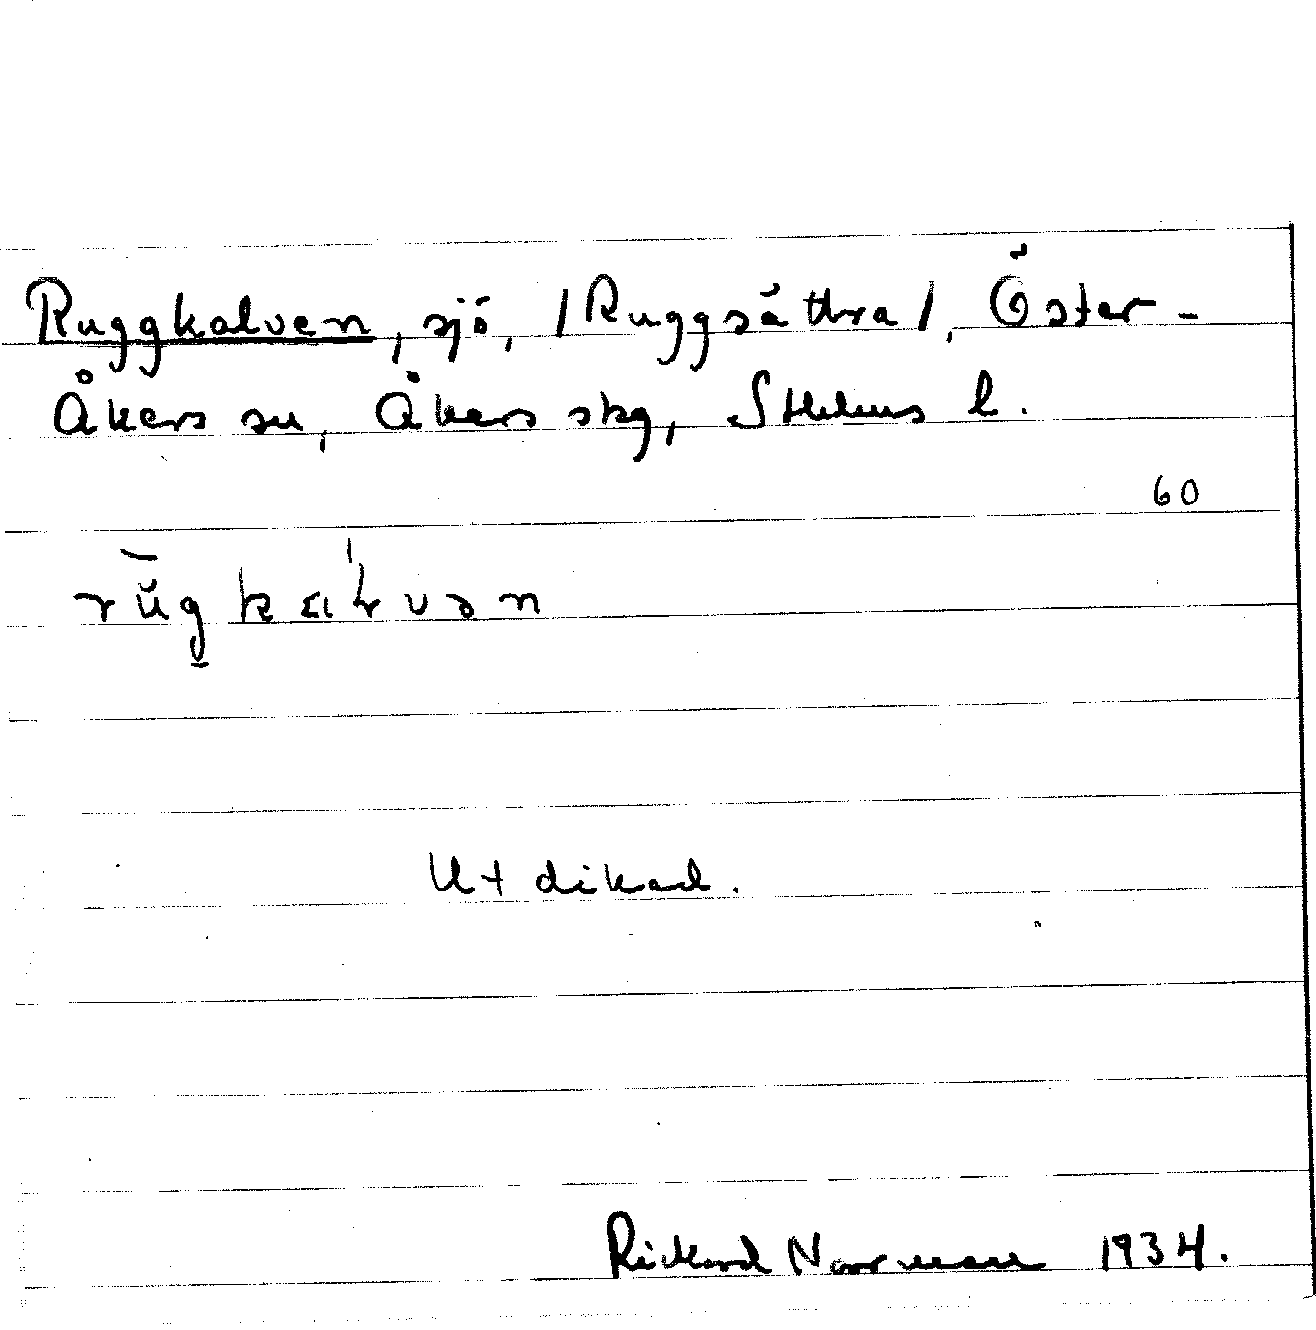 Ruggkalven, sjö, /Ruggsättra/, Öster-
Åkers sn, Åkers skg, Sthlms l.
60
Utdikad.
Rickard Norrman 1934.